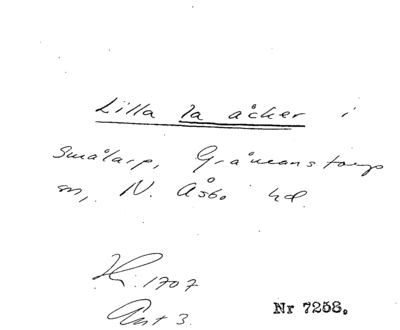 Lilla 1a åcker i
Smålarp, Gråmanstorps
sn, N. Åsbo hd.
1707
Akt 3.
Nr 7258.